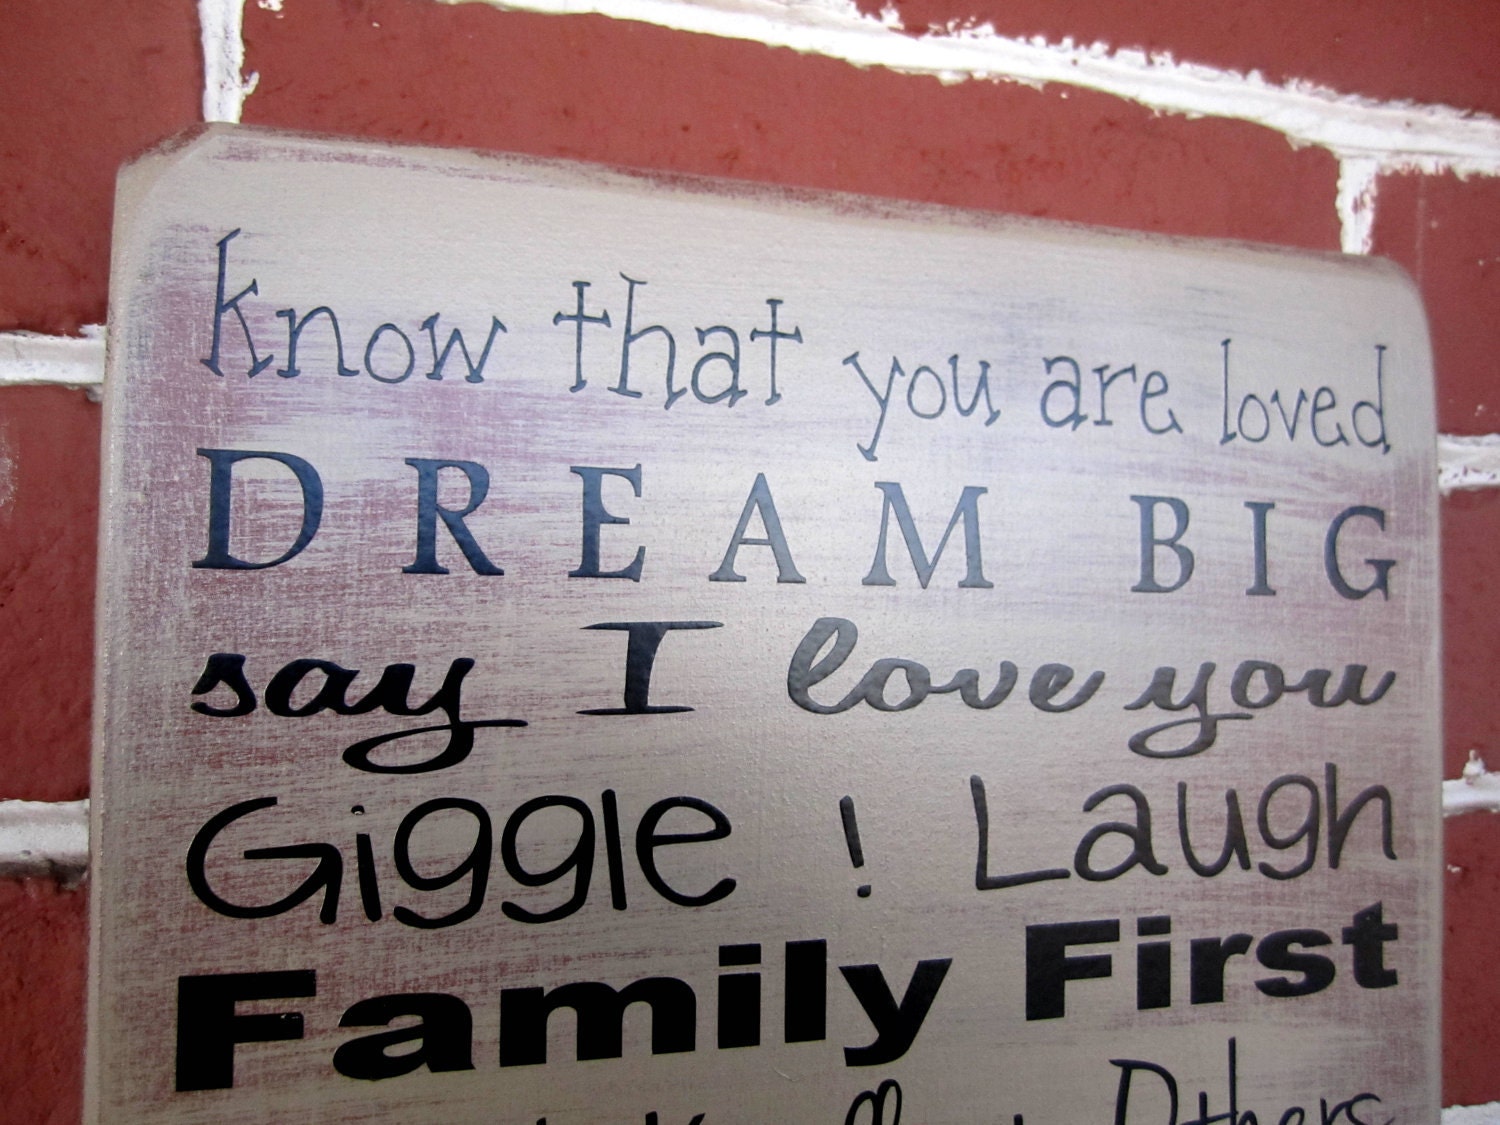 know that you are loved
DREAM BIG
say I love you
Giggle ! Laugh
Family First
Others